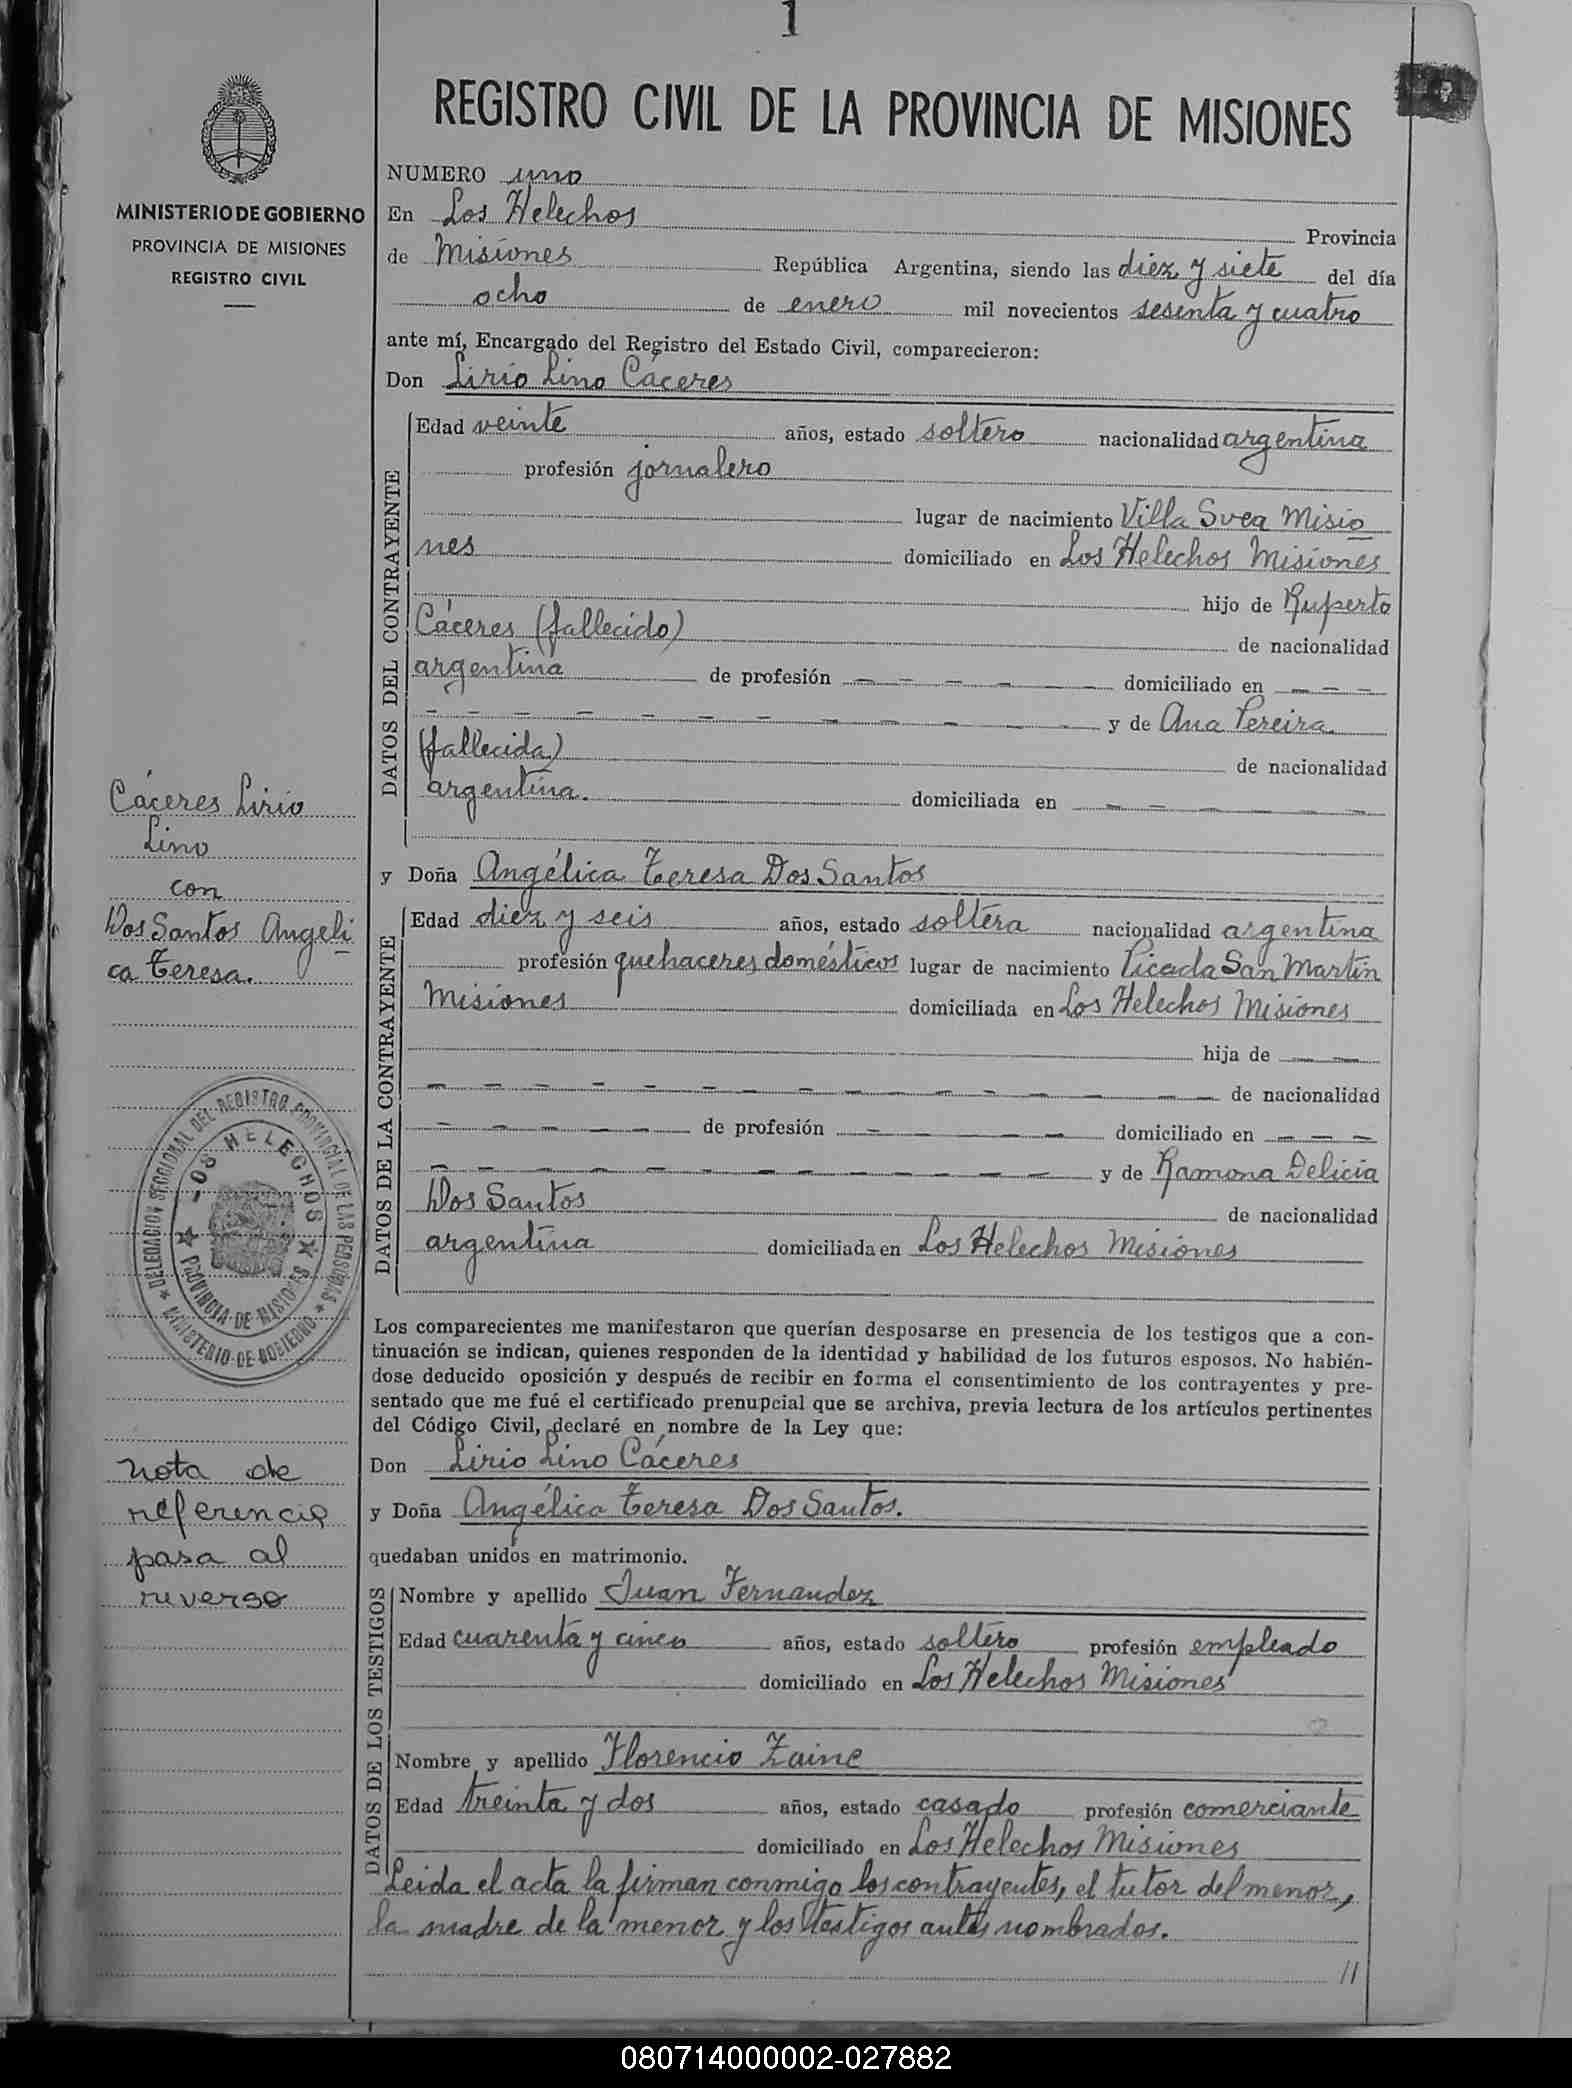 1
REGISTRO CIVIL DE LA PROVINCIA DE MISIONES
MINISTERIO DE GOBIERNO
PROVINCIA DE MISIONES
REGISTRO CIVIL
NUMERO uno
En Los Helechos Provincia
de Misiones República Argentina, siendo las diez y siete del día
ocho de enero mil novecientos sesenta y cuatro
ante mí, Encargado del Registro del Estado Civil, comparecieron:
Don Lirio Lino Cáceres
DATOS DEL CONTRAYENTE
Edad veinte años, estado soltero nacionalidad argentina
profesión jornalero
lugar de nacimiento Villa Svea Misio
nes domiciliado en Los Helechos Misiones
hijo de Ruperto
Cáceres (fallecido) de nacionalidad
argentina de profesión — — — — — domiciliado en — — —
— — — — — — — — — — — y de Ana Pereira
(fallecida) de nacionalidad
argentina. domiciliada en — — — — — —
Cáceres Lirio
Lino
con
Dos Santos Angeli
ca Teresa.
y Doña Angélica Teresa Dos Santos
DATOS DE LA CONTRAYENTE
Edad diez y seis años, estado soltera nacionalidad argentina
profesión quehaceres domésticos lugar de nacimiento Picada San Martín
Misiones domiciliada en Los Helechos Misiones
hija de — —
— — — — — — — — — — — — — de nacionalidad
— — — — — de profesión — — — — — domiciliado en — — —
— — — — — — — — — — — — y de Ramona Delicia
Dos Santos de nacionalidad
argentina domiciliada en Los Helechos Misiones
DELEGACION SECCIONAL DEL REGISTRO PROVINCIAL DE LAS PERSONAS
LOS HELECHOS
PROVINCIA DE MISIONES
MINISTERIO DE GOBIERNO
Los comparecientes me manifestaron que querían desposarse en presencia de los testigos que a con-
tinuación se indican, quienes responden de la identidad y habilidad de los futuros esposos. No habién-
dose deducido oposición y después de recibir en forma el consentimiento de los contrayentes y pre-
sentado que me fué el certificado prenupcial que se archiva, previa lectura de los artículos pertinentes
del Código Civil, declaré en nombre de la Ley que:
Don Lirio Lino Cáceres
y Doña Angélica Teresa Dos Santos.
quedaban unidos en matrimonio.
nota de
referencia
pasa al
reverso
DATOS DE LOS TESTIGOS
Nombre y apellido Juan Fernandez
Edad cuarenta y cinco años, estado soltero profesión empleado
domiciliado en Los Helechos Misiones
Nombre y apellido Florencio Zaine
Edad treinta y dos años, estado casado profesión comerciante
domiciliado en Los Helechos Misiones
Leida el acta la firman conmigo los contrayentes, el tutor del menor,
la madre de la menor y los testigos antes nombrados.
//
080714000002-027882